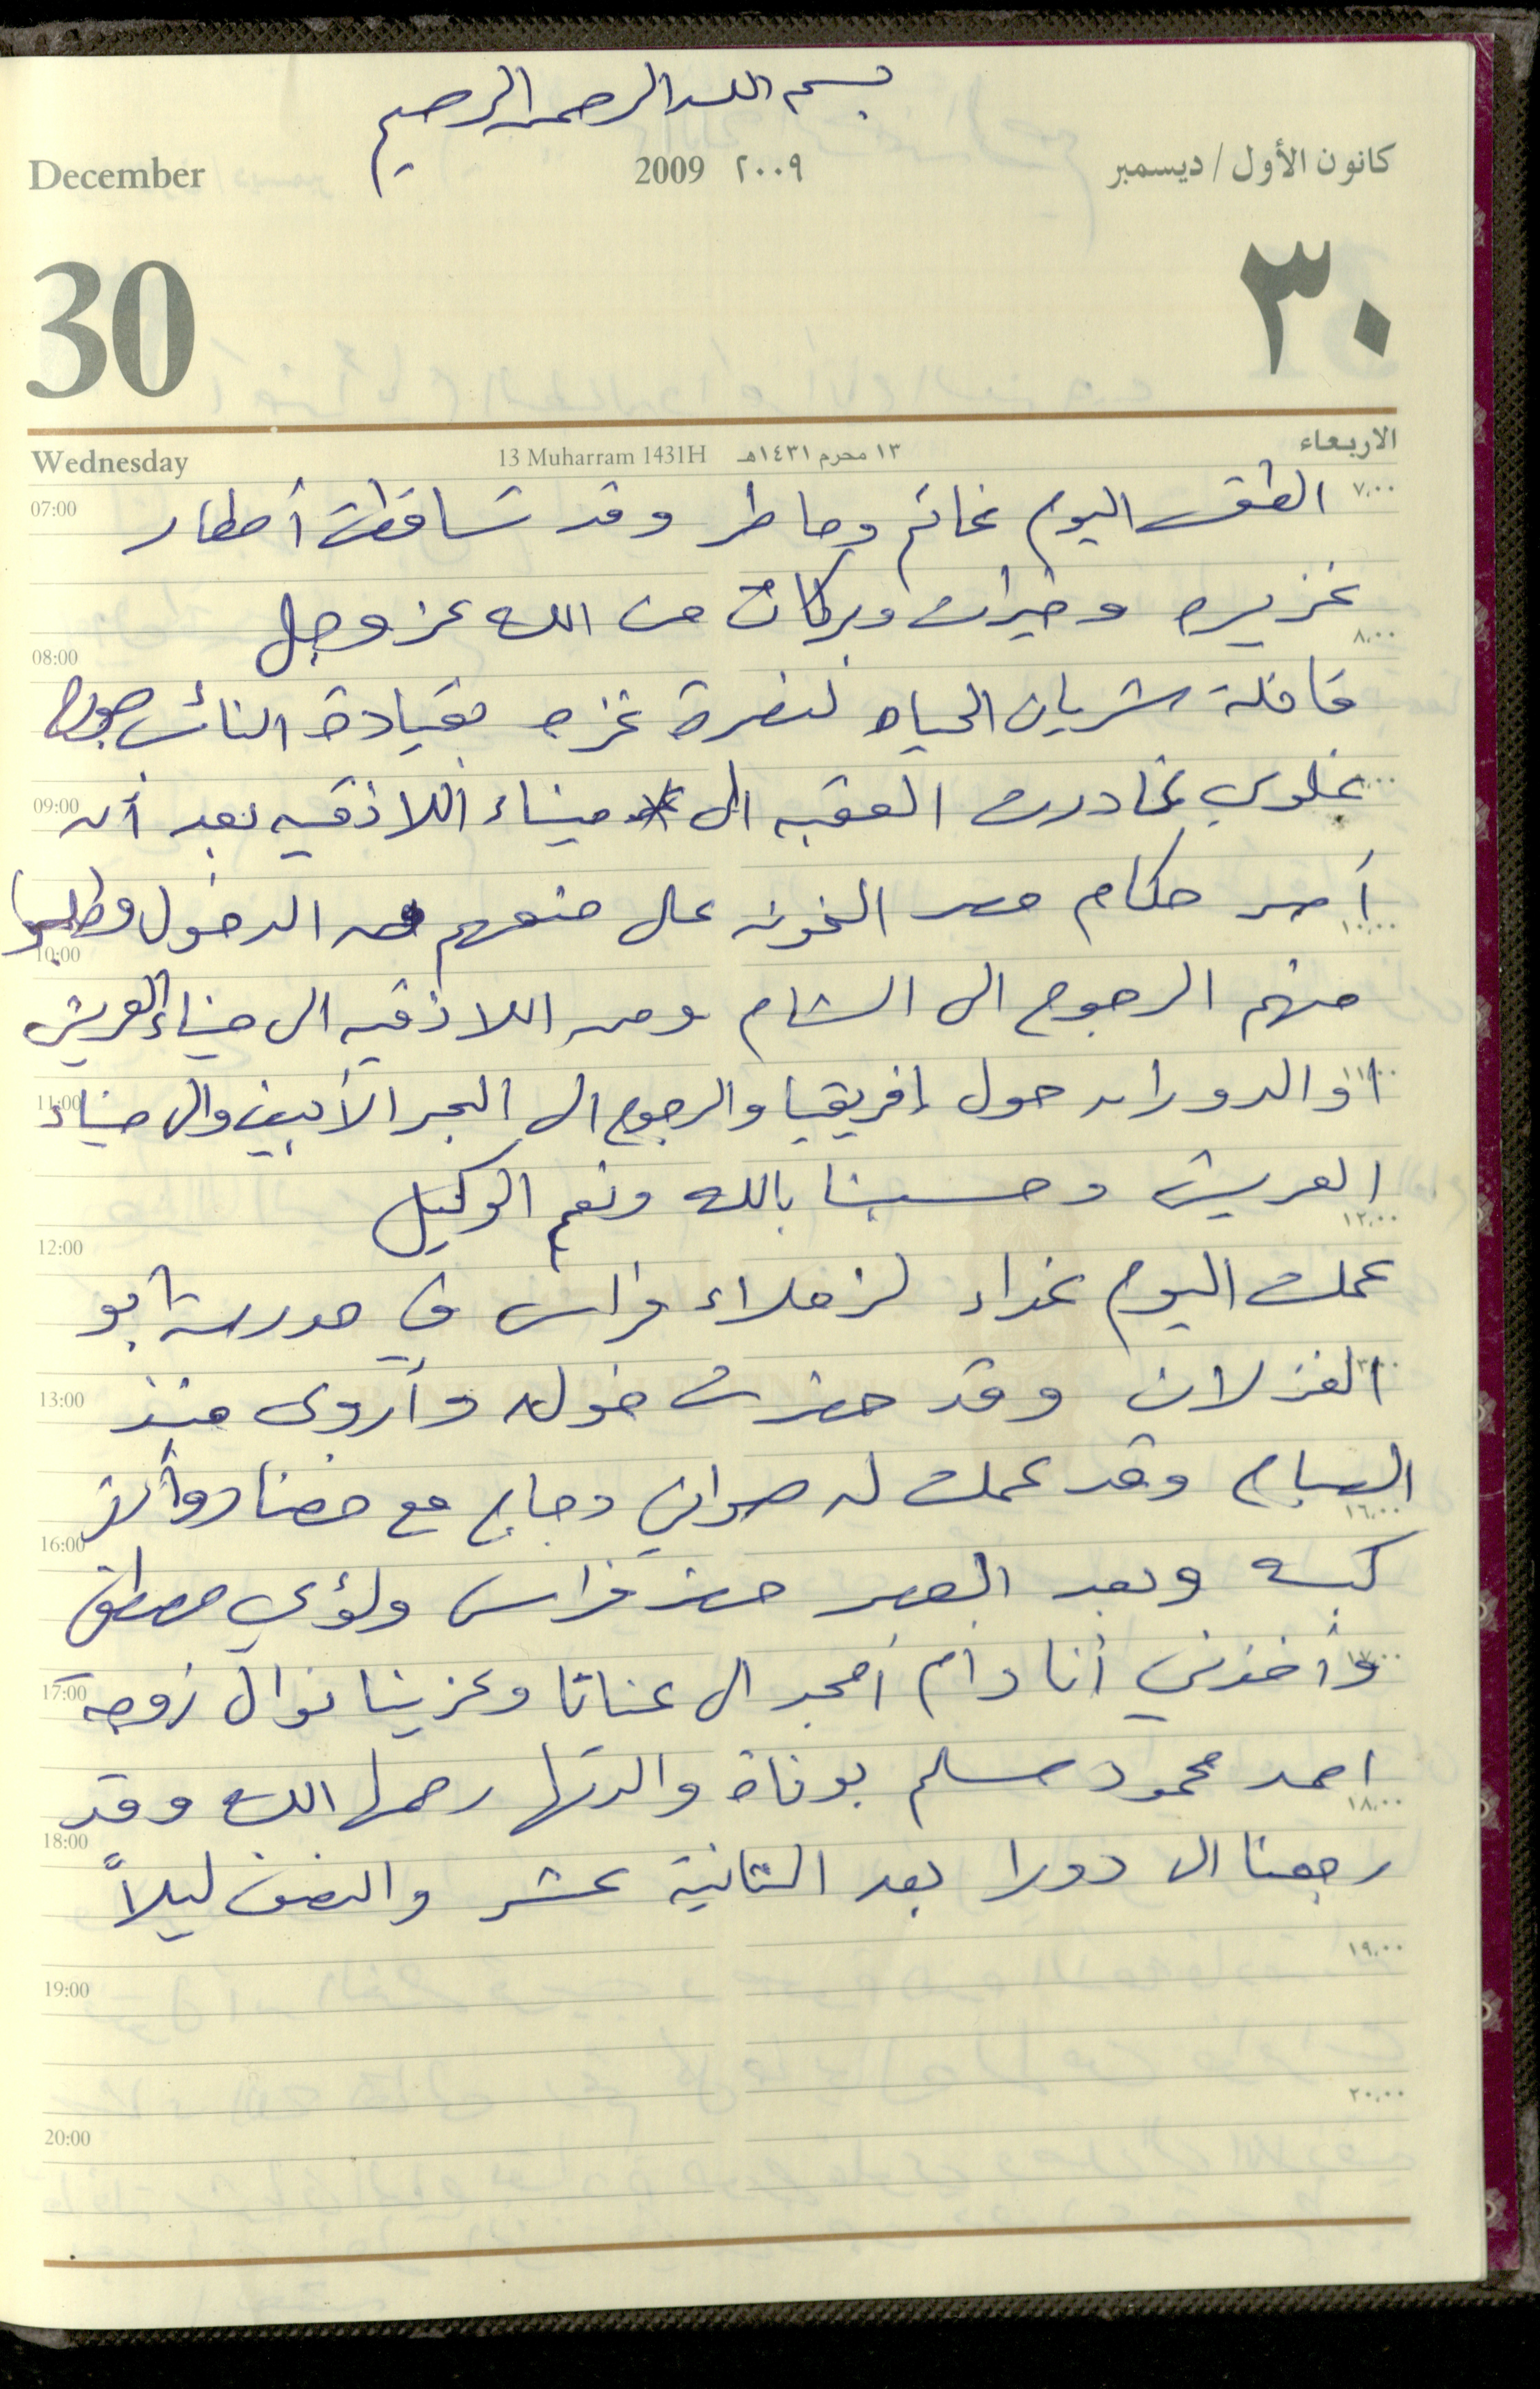 بسم الله الرحمن الرحيم
December 2009 ٢٠٠٩ كانون الأول / ديسمبر
30 ٣٠
Wednesday 13 Muharram 1431H ١٣ محرم ١٤٣١هـ الاربعاء
07:00 ٧،٠٠
الطقس اليوم غائم وماطر وقد تساقطت أمطار
غزيره وخيرات وبركات من الله عز وجل
08:00 ٨،٠٠
قافلة شريان الحياه لنصرة غزه بقيادة النائب جورج
غلوي غادرت العقبه الى ميناء اللاذقيه بعد أن
09:00
أصر حكام مصر الخونه على منعهم من الدخول وطلبوا
10:00 ١٠،٠٠
منهم الرجوع الى الشام ومن اللاذقيه الى ميناء العريش
او الدوران حول إفريقيا والرجوع الى البحر الأبيض والى ميناء
11:00 ١١،٠٠
العريش وحسبنا بالله ونعم الوكيل
12:00 ١٢،٠٠
عملت اليوم غداء لزملاء فراس في مدرسة أبو
الغزلان وقد حضرت خوله وأروى منذ
13:00
الصباح وقد عملت له صواني دجاج مع خضار وأرز
16:00 ١٦،٠٠
كبسه وبعد العصر حضر فراس ولؤي مصطفى
وأخذني أنا وام أمجد الى عناتا وعزينا نوال زوجة
17:00 ١٧،٠٠
احمد محمود مسلم بوفاة والدتها رحمها الله وقد
18:00 ١٨،٠٠
رجعنا الى دورا بعد الثانية عشر والنصف ليلاً
19:00 ١٩،٠٠
20:00 ٢٠،٠٠